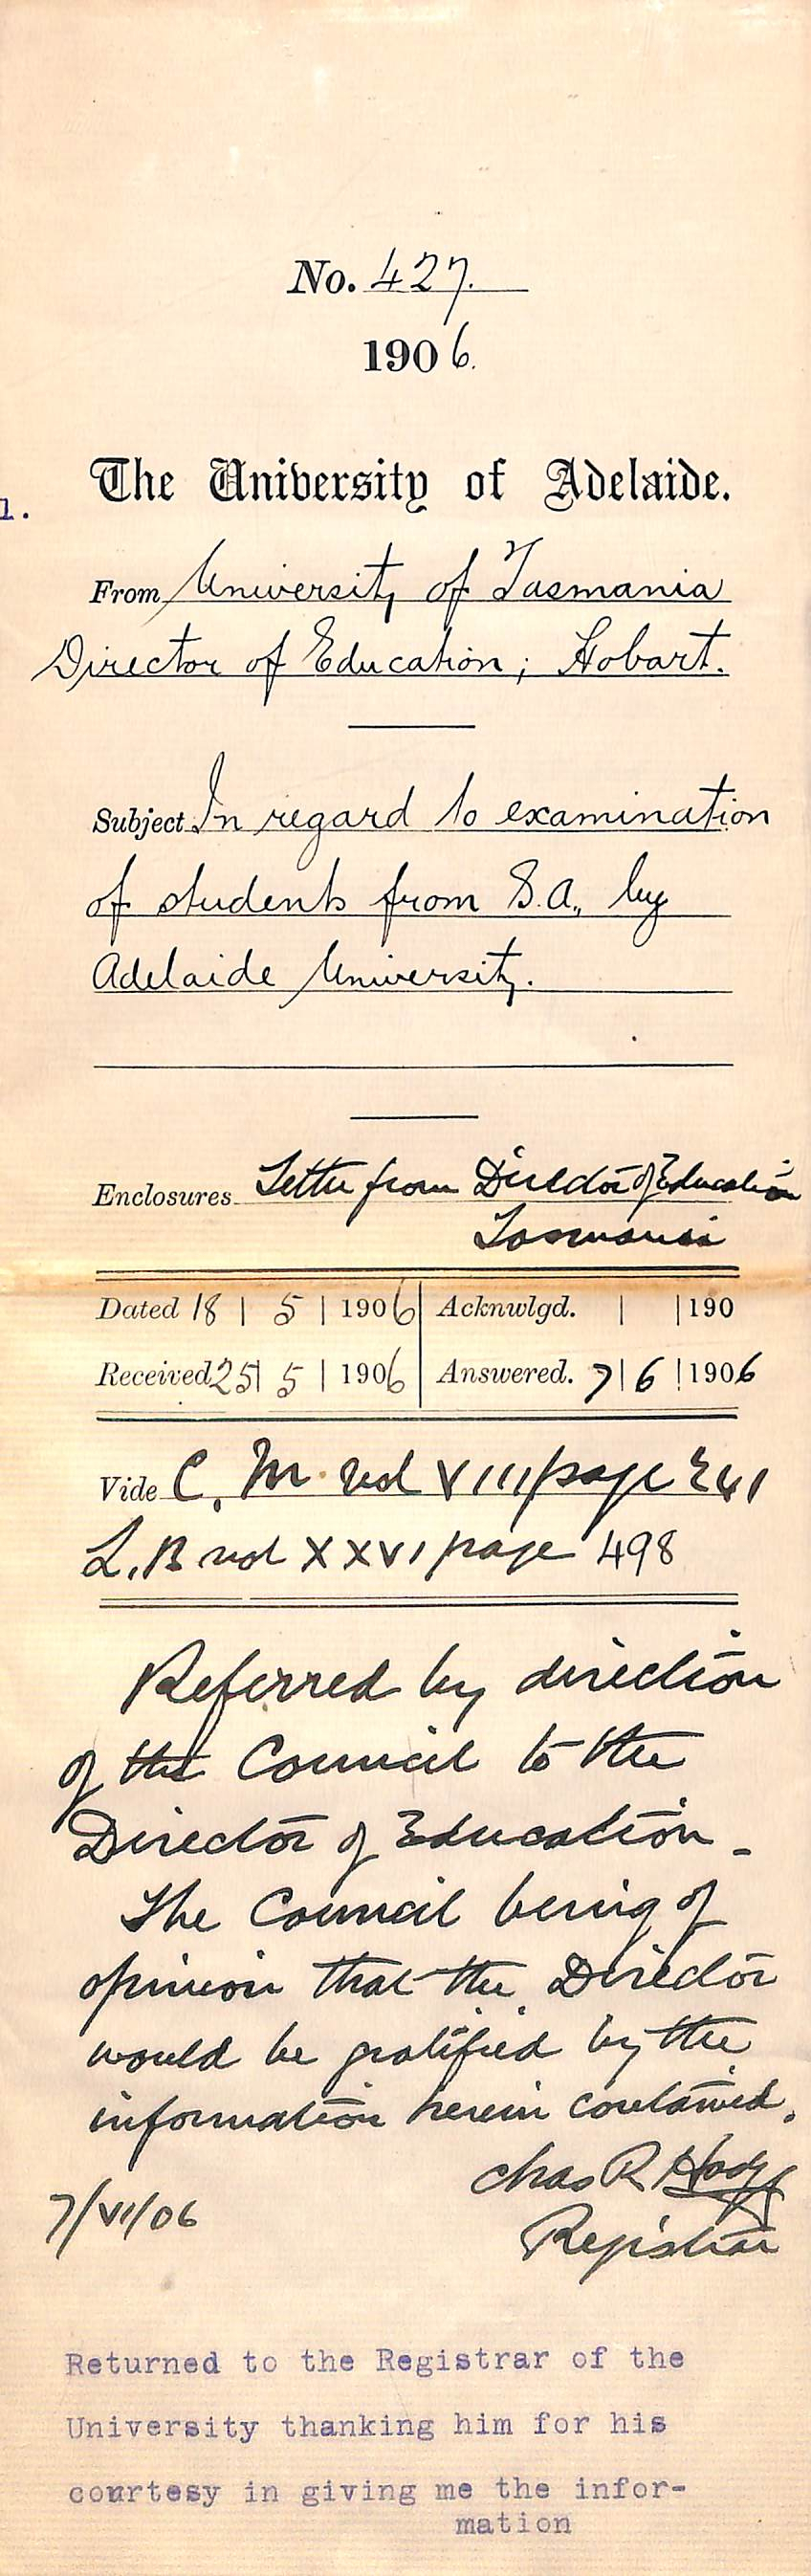 No. 427.
1906.
The University of Adelaide.
1.
From University of Tasmania
Director of Education; Hobart.
Subject In regard to examination
of students from S.A., by
Adelaide University.
Enclosures Letter from Director of Education
Tasmania
Dated 18 | 5 | 1906 Acknwlgd. | | 190
Received 25 | 5 | 1906 Answered. 7 | 6 | 1906
Vide C. M. vol VIII page 241
L. B vol XXVI page 498
Referred by direction
of the Council to the
Director of Education -
The Council being of
opinion that the Director
would be gratified by the
information herein contained.
Chas R Hodge
7/VI/06
Registrar
Returned to the Registrar of the
University thanking him for his
courtesy in giving me the infor-
mation